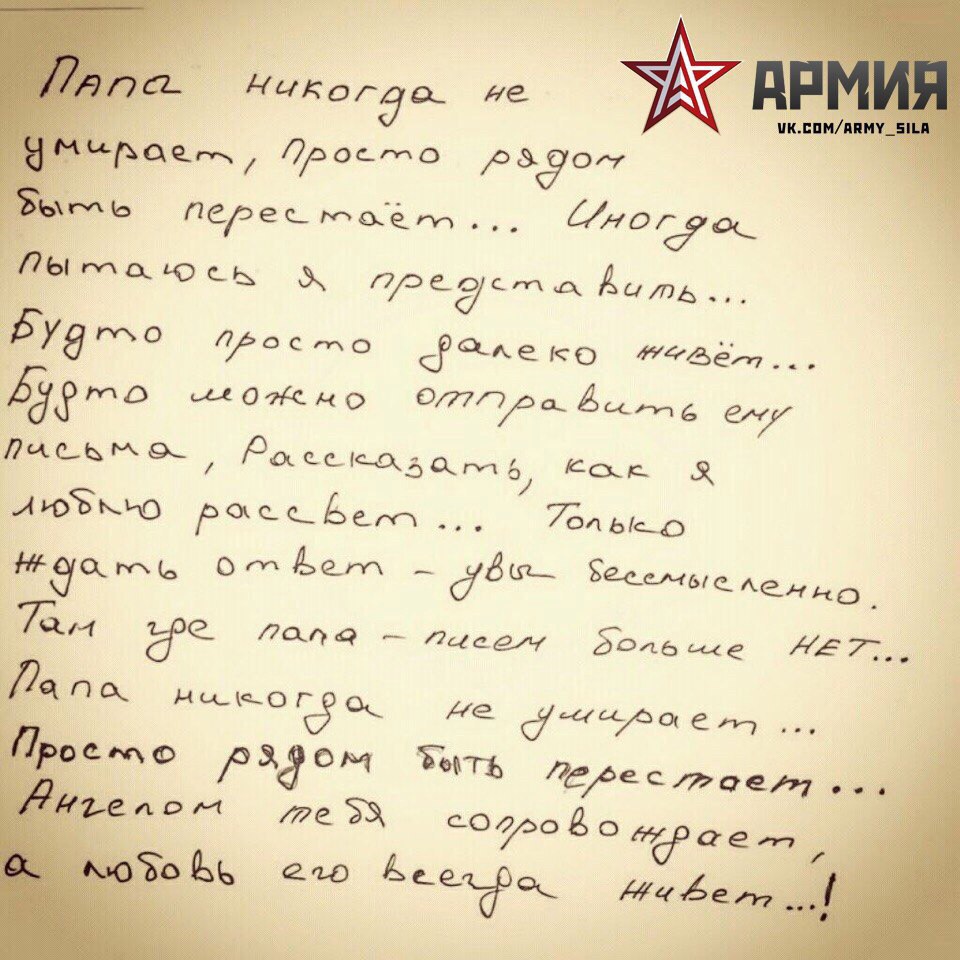 АРМИЯ
VK.COM/ARMY_SILA
Папа никогда не
умирает, просто рядом
быть перестаёт... Иногда
пытаюсь я представить...
Будто просто далеко живёт...
Будто можно отправить ему
письма, Рассказать, как я
люблю рассвет... Только
ждать ответ - увы бессмысленно.
Там где папа - писем больше НЕТ...
Папа никогда не умирает...
Просто рядом быть перестает...
Ангелом тебя сопровождает,
а любовь его всегда живет...!